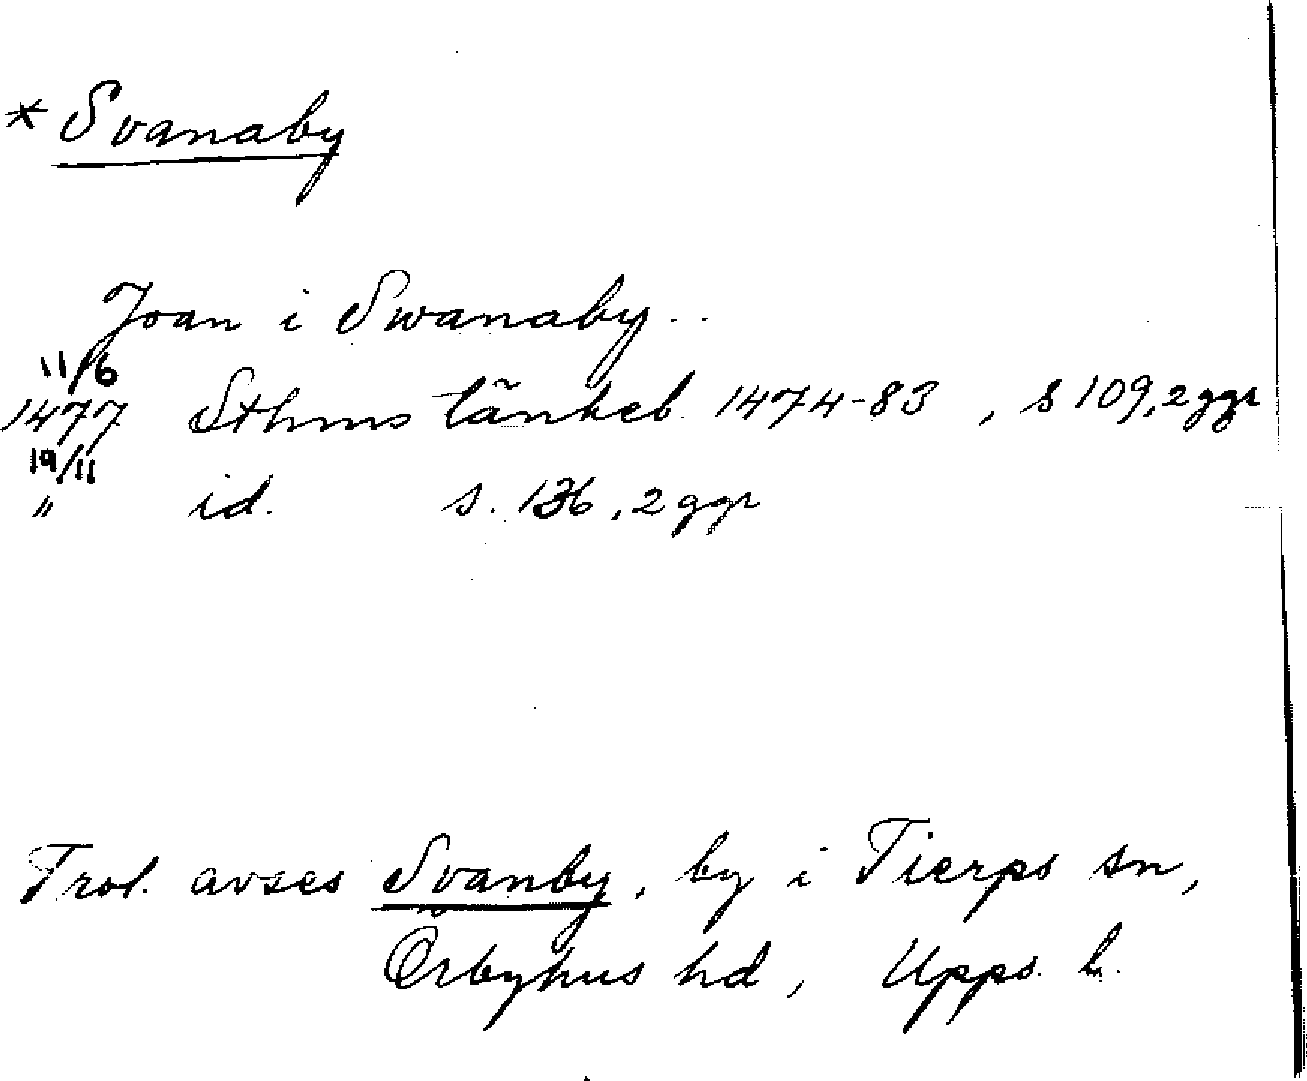 * Svanaby
Joan i Swanaby..
11/6
1477 Sthms tänkeb. 1474-83, s 109, 2 ggr
19/11
" id. s. 136, 2 ggr
Trol. avses Svanby, by i Tierps sn,
Örbyhus hd, Upps. l.